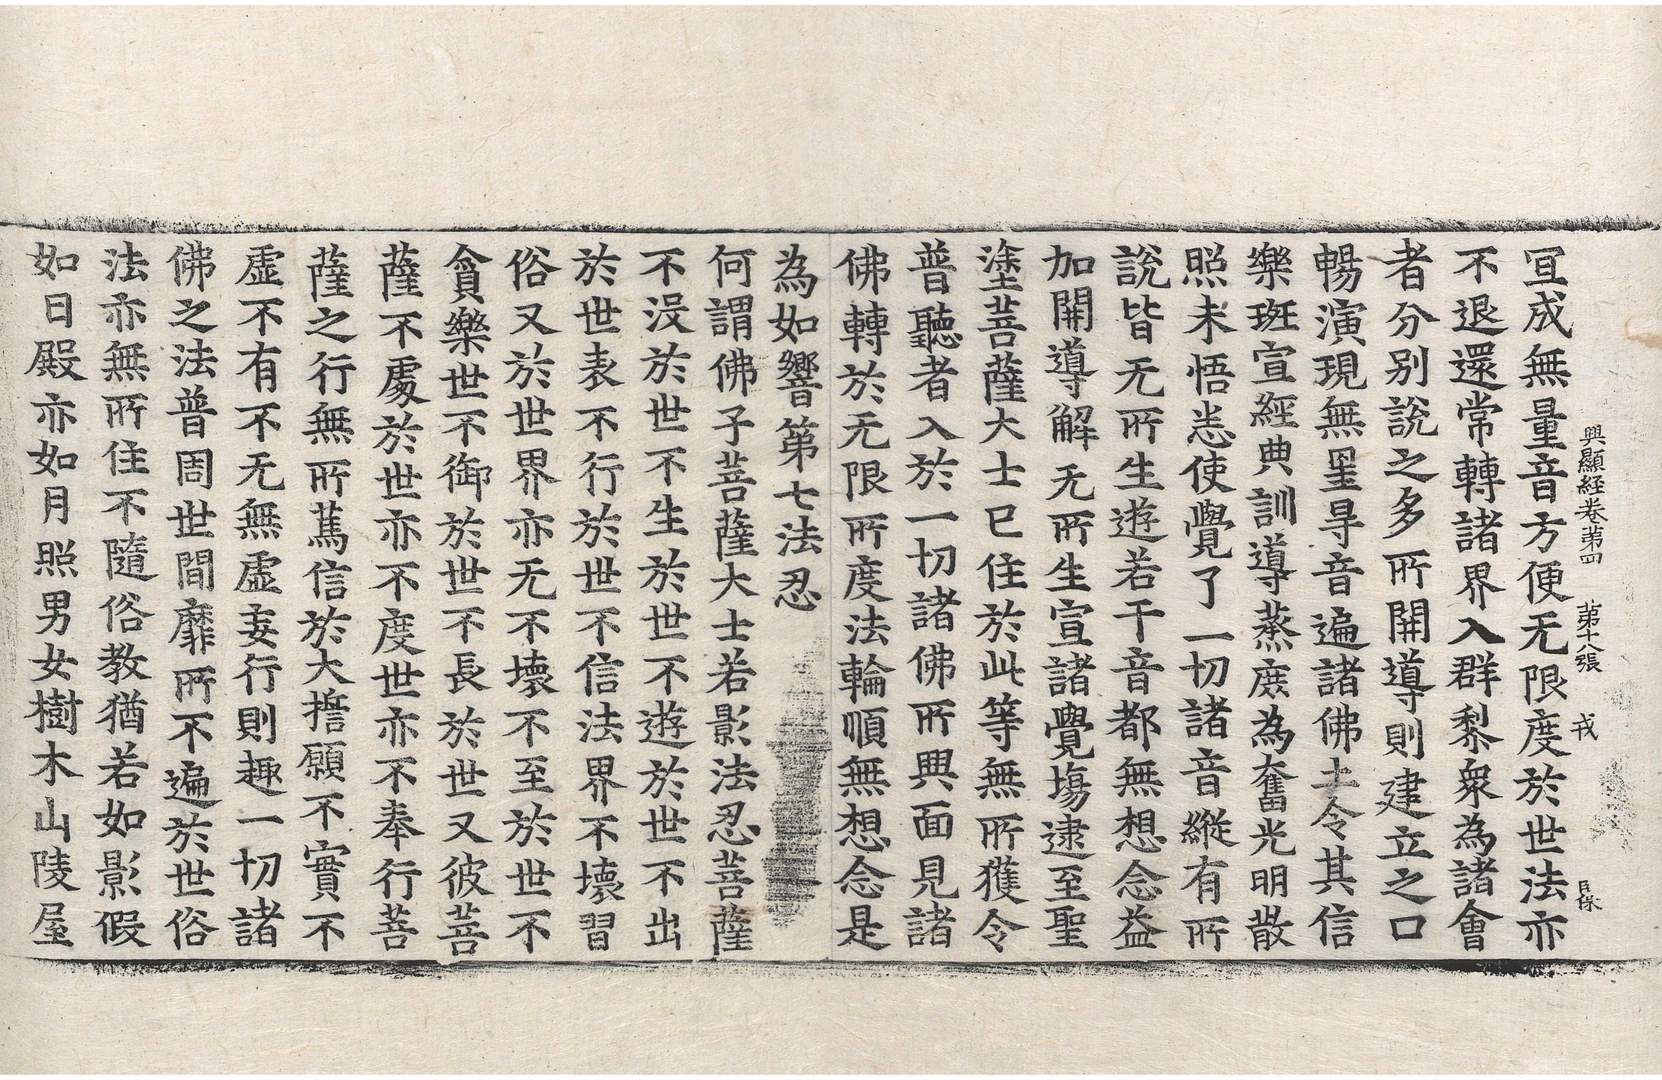 興顯経卷第四　第十八張　戎
宣成無量音方便无限度於世法亦
不退還常轉諸界入群黎衆為諸會
者分別說之多所開導則建立之口
暢演現無罣㝵音遍諸佛土令其信
樂班宣經典訓導蒸庶為奮光明散
照未悟悉使覺了一切諸音縱有所
說皆无所生遊若干音都無想念益
加開導解无所生宣諸覺塲逮至聖
塗菩薩大士已住於此等無所獲令
普聽者入於一切諸佛所興面見諸
佛轉於无限所度法輪順無想念是
為如響第七法忍
何謂佛子菩薩大士若影法忍菩薩
不没於世不生於世不遊於世不出
於世表不行於世不信法界不壞習
俗又於世界亦无不壞不至於世不
貪樂世不御於世不長於世又彼菩
薩不處於世亦不度世亦不奉行菩
薩之行無所蔿信於大擔願不實不
虛不有不无無虛妄行則趣一切諸
佛之法普周世間靡所不遍於世俗
法亦無所住不隨俗教猶若如影假
如日殿亦如月照男女樹木山陵屋